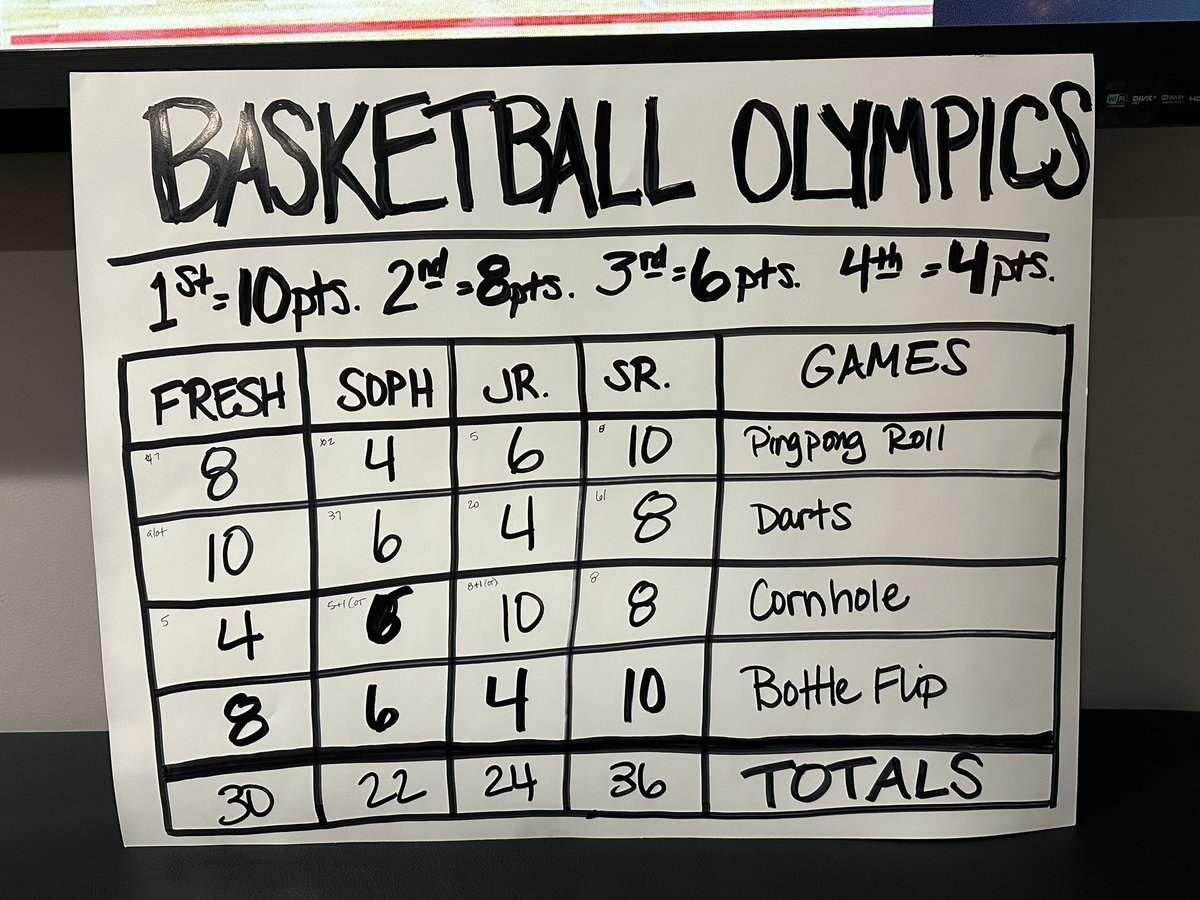 BASKETBALL OLYMPICS
1st = 10pts. 2nd = 8pts. 3rd = 6pts. 4th = 4pts.
FRESH SOPH JR. SR. GAMES
8 4 5 6 8 10 Pingpong Roll
alot 10 37 6 20 4 61 8 Darts
5 4 5+1(OT 6 8+1(OT) 10 8 8 Cornhole
8 6 4 10 Bottle Flip
30 22 24 36 TOTALS
WiFi DIVX+ HD DOLBY